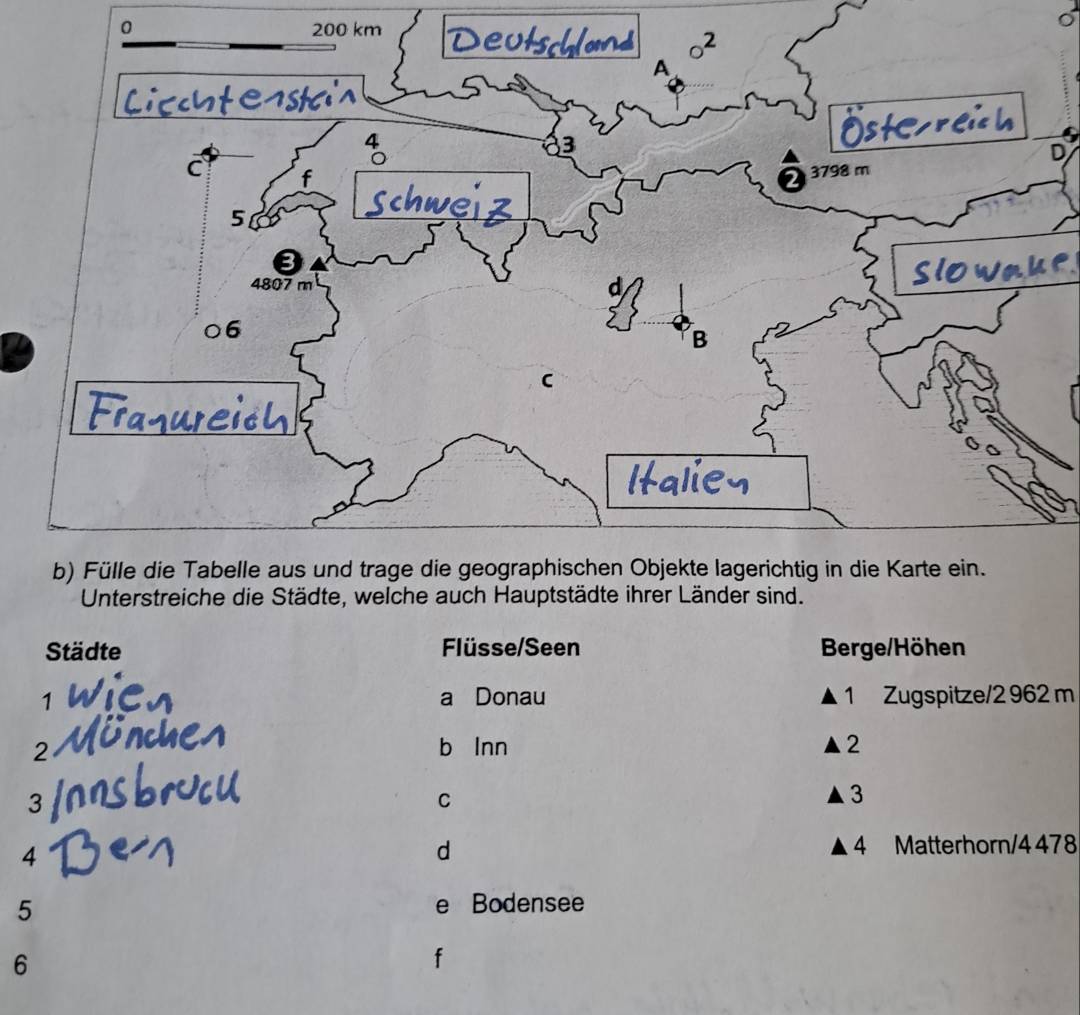 0 200 km
Deutschland
2
A
Liechtenstein
Österreich
4
3
C
D
2 3798 m
f
Schweiz
5
3
4807 m
Slowake
d
6
B
c
Frankreich
Italien
b) Fülle die Tabelle aus und trage die geographischen Objekte lagerichtig in die Karte ein.
Unterstreiche die Städte, welche auch Hauptstädte ihrer Länder sind.
Städte Flüsse/Seen Berge/Höhen
1 Wien a Donau ▲1 Zugspitze/2 962 m
2 München b Inn ▲2
3 Innsbruck c ▲3
4 Bern d ▲4 Matterhorn/4 478
5 e Bodensee
6 f